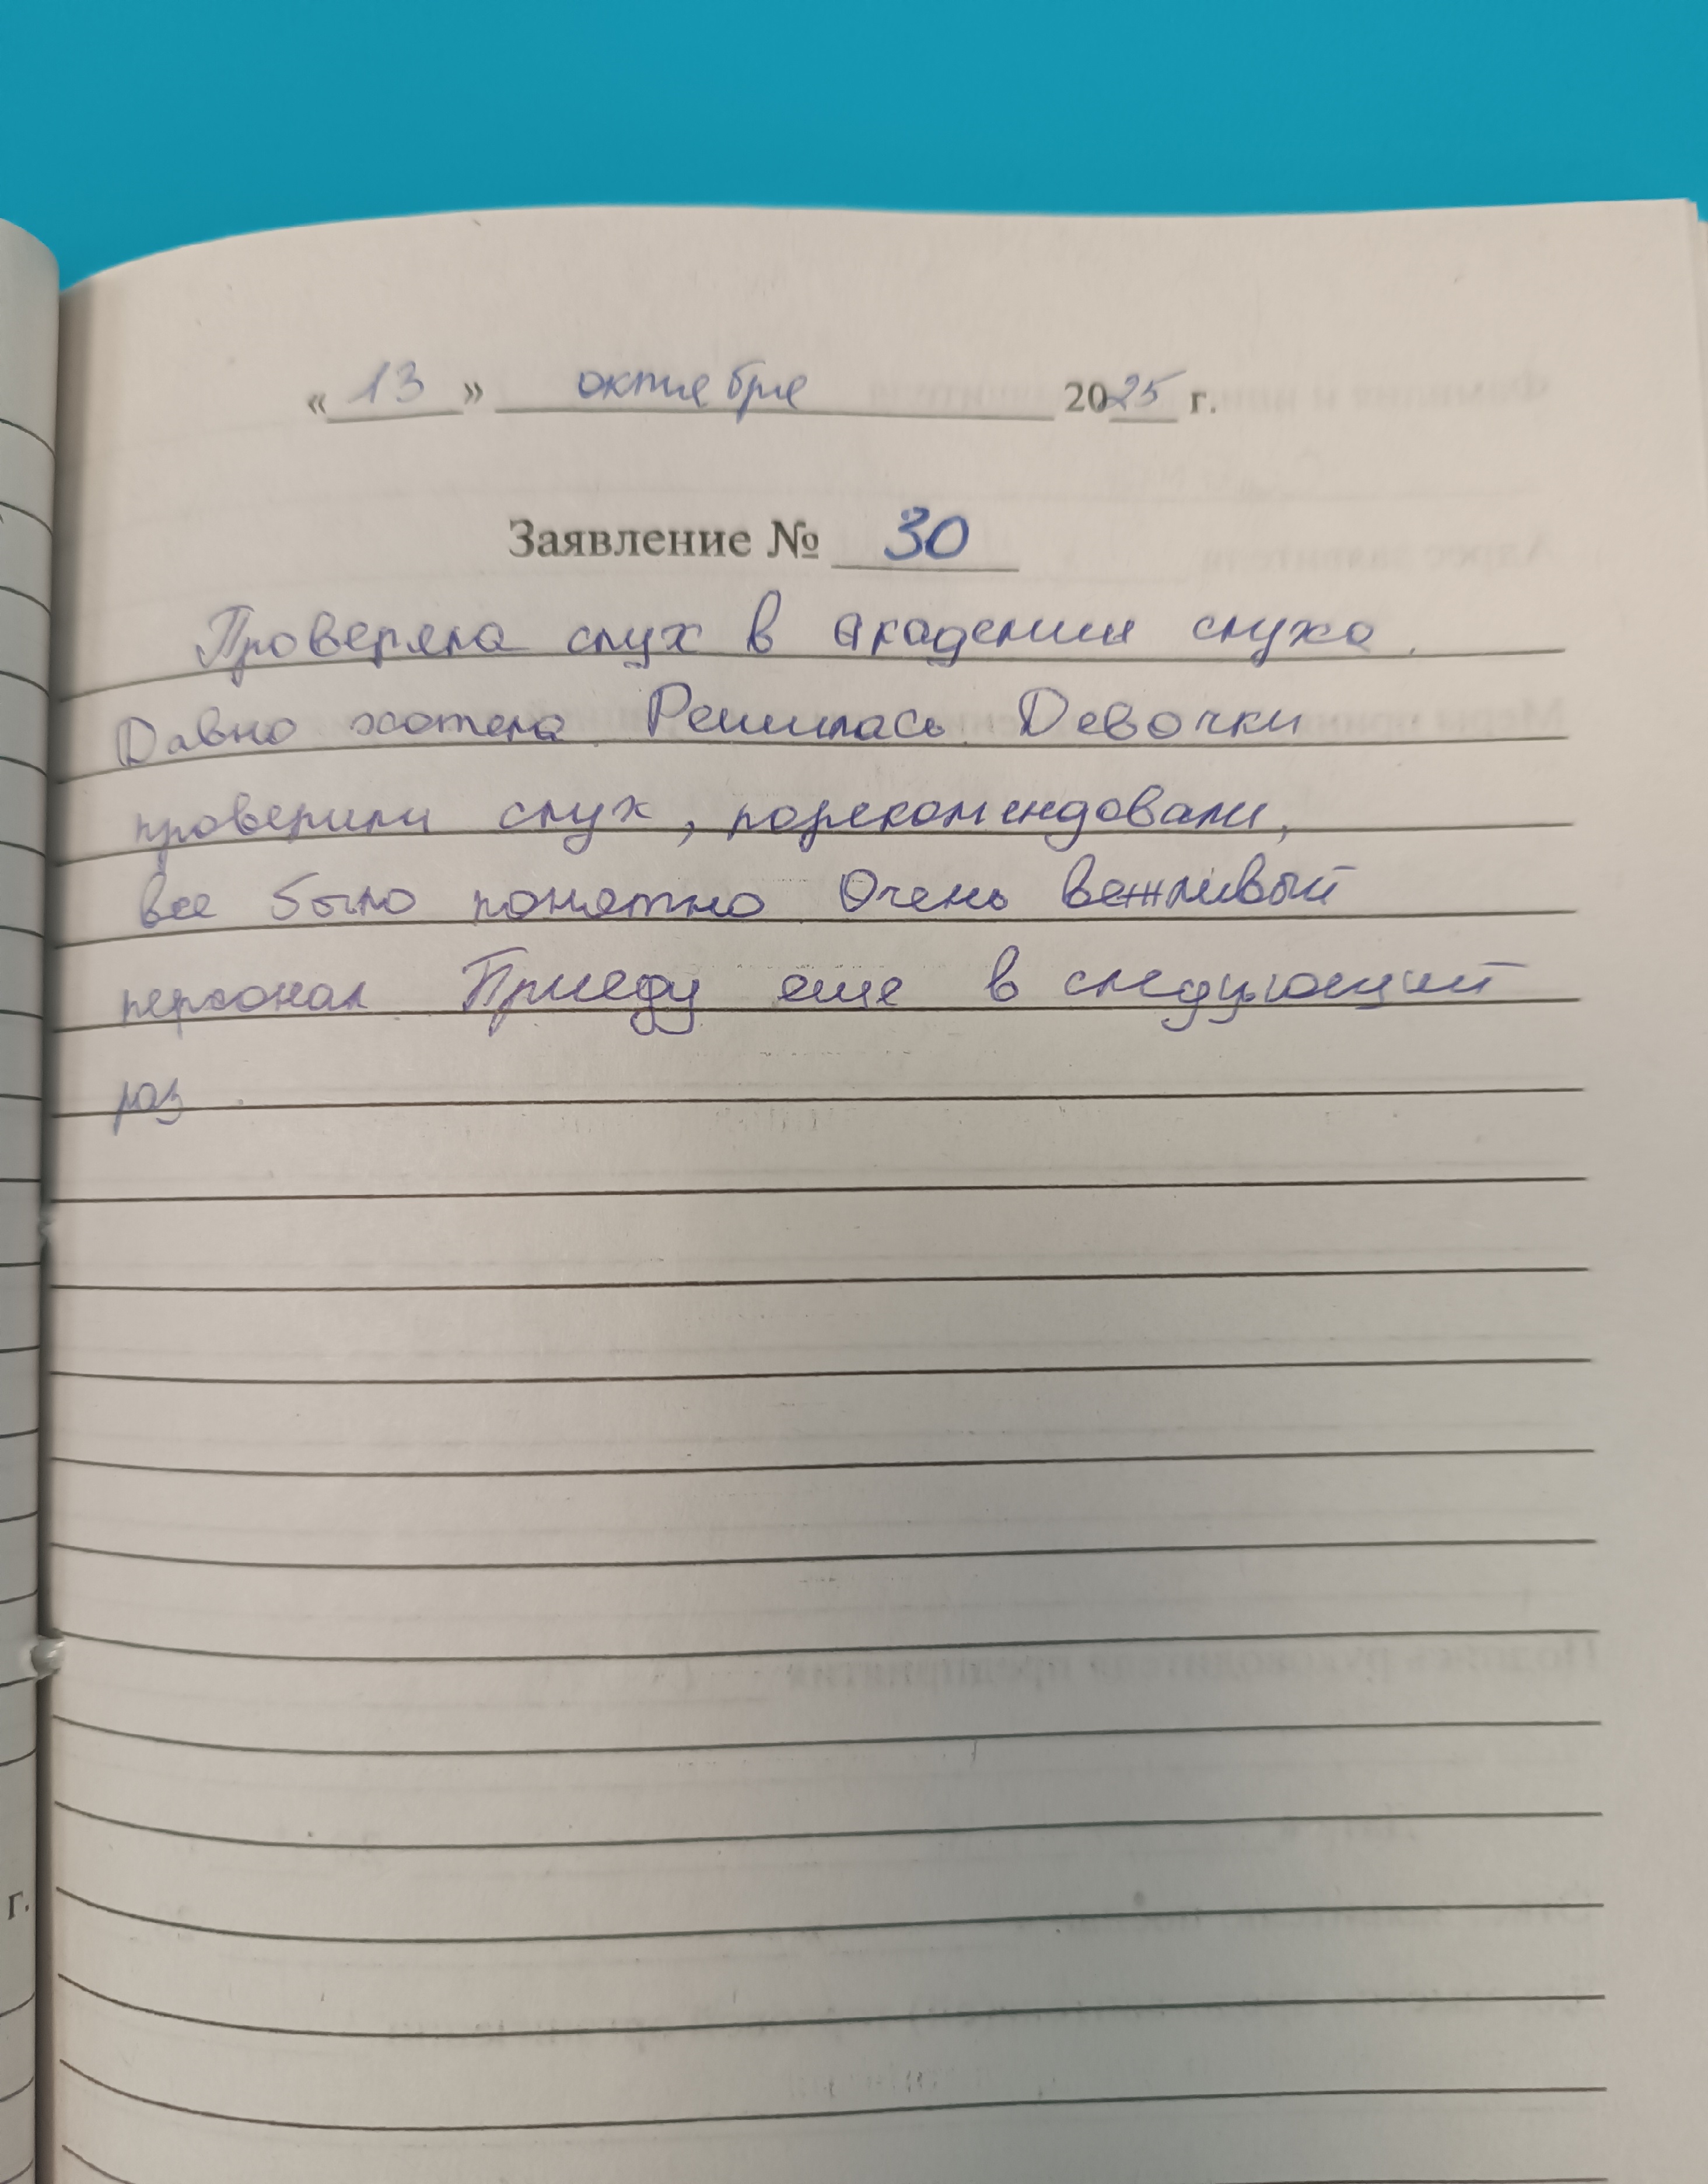 « 13 » октября 2025 г.
Заявление № 30
Проверяла слух в Академии слуха.
Давно хотела. Решилась. Девочки
проверили слух, порекомендовали,
все было понятно. Очень вежливый
персонал. Приеду еще в следующий
раз.
г.